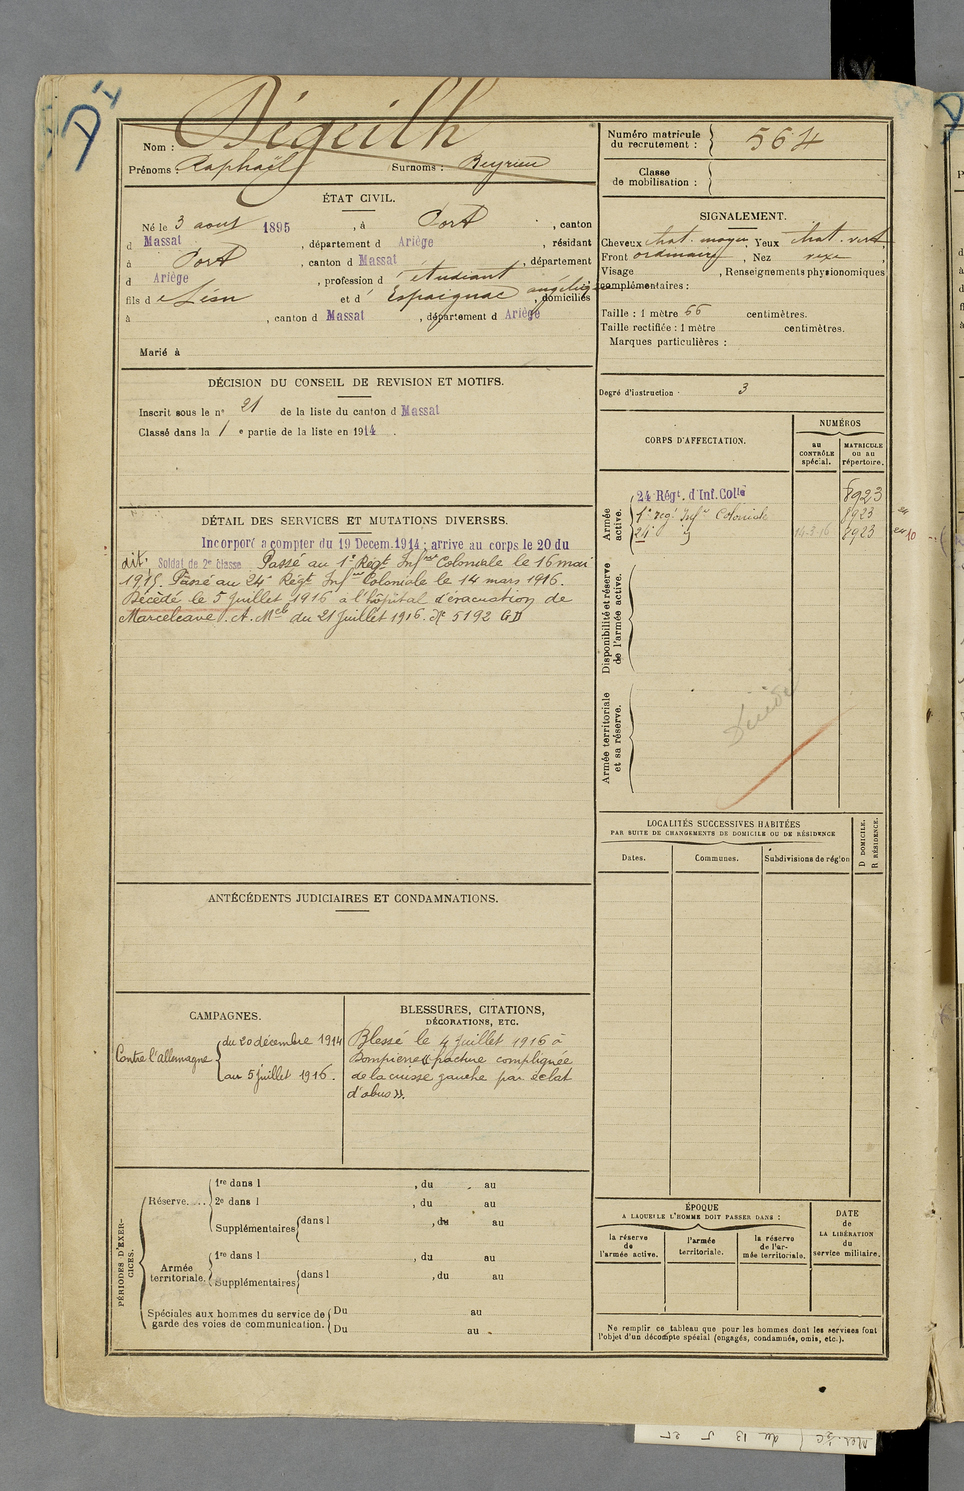 Dy
Nom : Dégeilh
Prénoms : Raphaël Surnoms : Beyrieu
ÉTAT CIVIL.
Né le 3 août 1895 , à Port , canton
d Massat , département d Ariège , résidant
à Port , canton d Massat , département
d Ariège , profession d étudiant
fils de Léon et d' Espaignac angélique , domiciliés
à , canton d Massat , département d Ariège
Marié à
DÉCISION DU CONSEIL DE REVISION ET MOTIFS.
Inscrit sous le n° 21 de la liste du canton d Massat
Classé dans la 1 e partie de la liste en 1914 .
DÉTAIL DES SERVICES ET MUTATIONS DIVERSES.
Incorporé à compter du 19 Décem. 1914 ; arrivé au corps le 20 du
dit; Soldat de 2e classe Passé au 1er Régt Infrie Coloniale le 16 mai
1915. Passé au 24e Régt Infrie Coloniale le 14 mars 1916.
Décédé le 5 Juillet 1916 à l'hôpital d'évacuation de
Marcelcave. A. Mel du 21 Juillet 1916. N° 5192 GD
ANTÉCÉDENTS JUDICIAIRES ET CONDAMNATIONS.
CAMPAGNES.
Contre l'allemagne
du 20 décembre 1914
au 5 juillet 1916.
BLESSURES, CITATIONS,
DÉCORATIONS, ETC.
Blessé le 4 Juillet 1916 à
Dompierre « fracture compliquée
de la cuisse gauche par éclat
d'obus ».
PÉRIODES D'EXERCICES.
Réserve....
1re dans l , du au
2e dans l , du au
Supplémentaires dans l , du au
Armée
territoriale.
1re dans l , du au
Supplémentaires dans l , du au
Spéciales aux hommes du service de
garde des voies de communication.
Du au
Du au
Numéro matricule
du recrutement : 564
Classe
de mobilisation :
SIGNALEMENT.
Cheveux chat. moyen , Yeux chat. vert ,
Front ordinaire , Nez vexe ,
Visage , Renseignements physionomiques
complémentaires :
Taille : 1 mètre 66 centimètres.
Taille rectifiée : 1 mètre centimètres.
Marques particulières :
Degré d'instruction · 3
CORPS D'AFFECTATION.
NUMÉROS
au
CONTRÔLE
spécial.
MATRICULE
ou au
répertoire.
Armée
active.
24 Régt. d'Inf. Colle 8923
1er regt Infie Coloniale 8923
24 14-3-16 8923
Disponibilité et réserve
de l'armée active.
Armée territoriale
et sa réserve.
LOCALITÉS SUCCESSIVES HABITÉES
PAR SUITE DE CHANGEMENTS DE DOMICILE OU DE RÉSIDENCE
Dates.
Communes.
Subdivisions de région
D DOMICILE.
R RÉSIDENCE.
ÉPOQUE
A LAQUELLE L'HOMME DOIT PASSER DANS :
la réserve
de
l'armée active.
l'armée
territoriale.
la réserve
de l'ar-
mée territoriale.
DATE
de
LA LIBÉRATION
du
service militaire.
Ne remplir ce tableau que pour les hommes dont les services font
l'objet d'un décompte spécial (engagés, condamnés, omis, etc.).